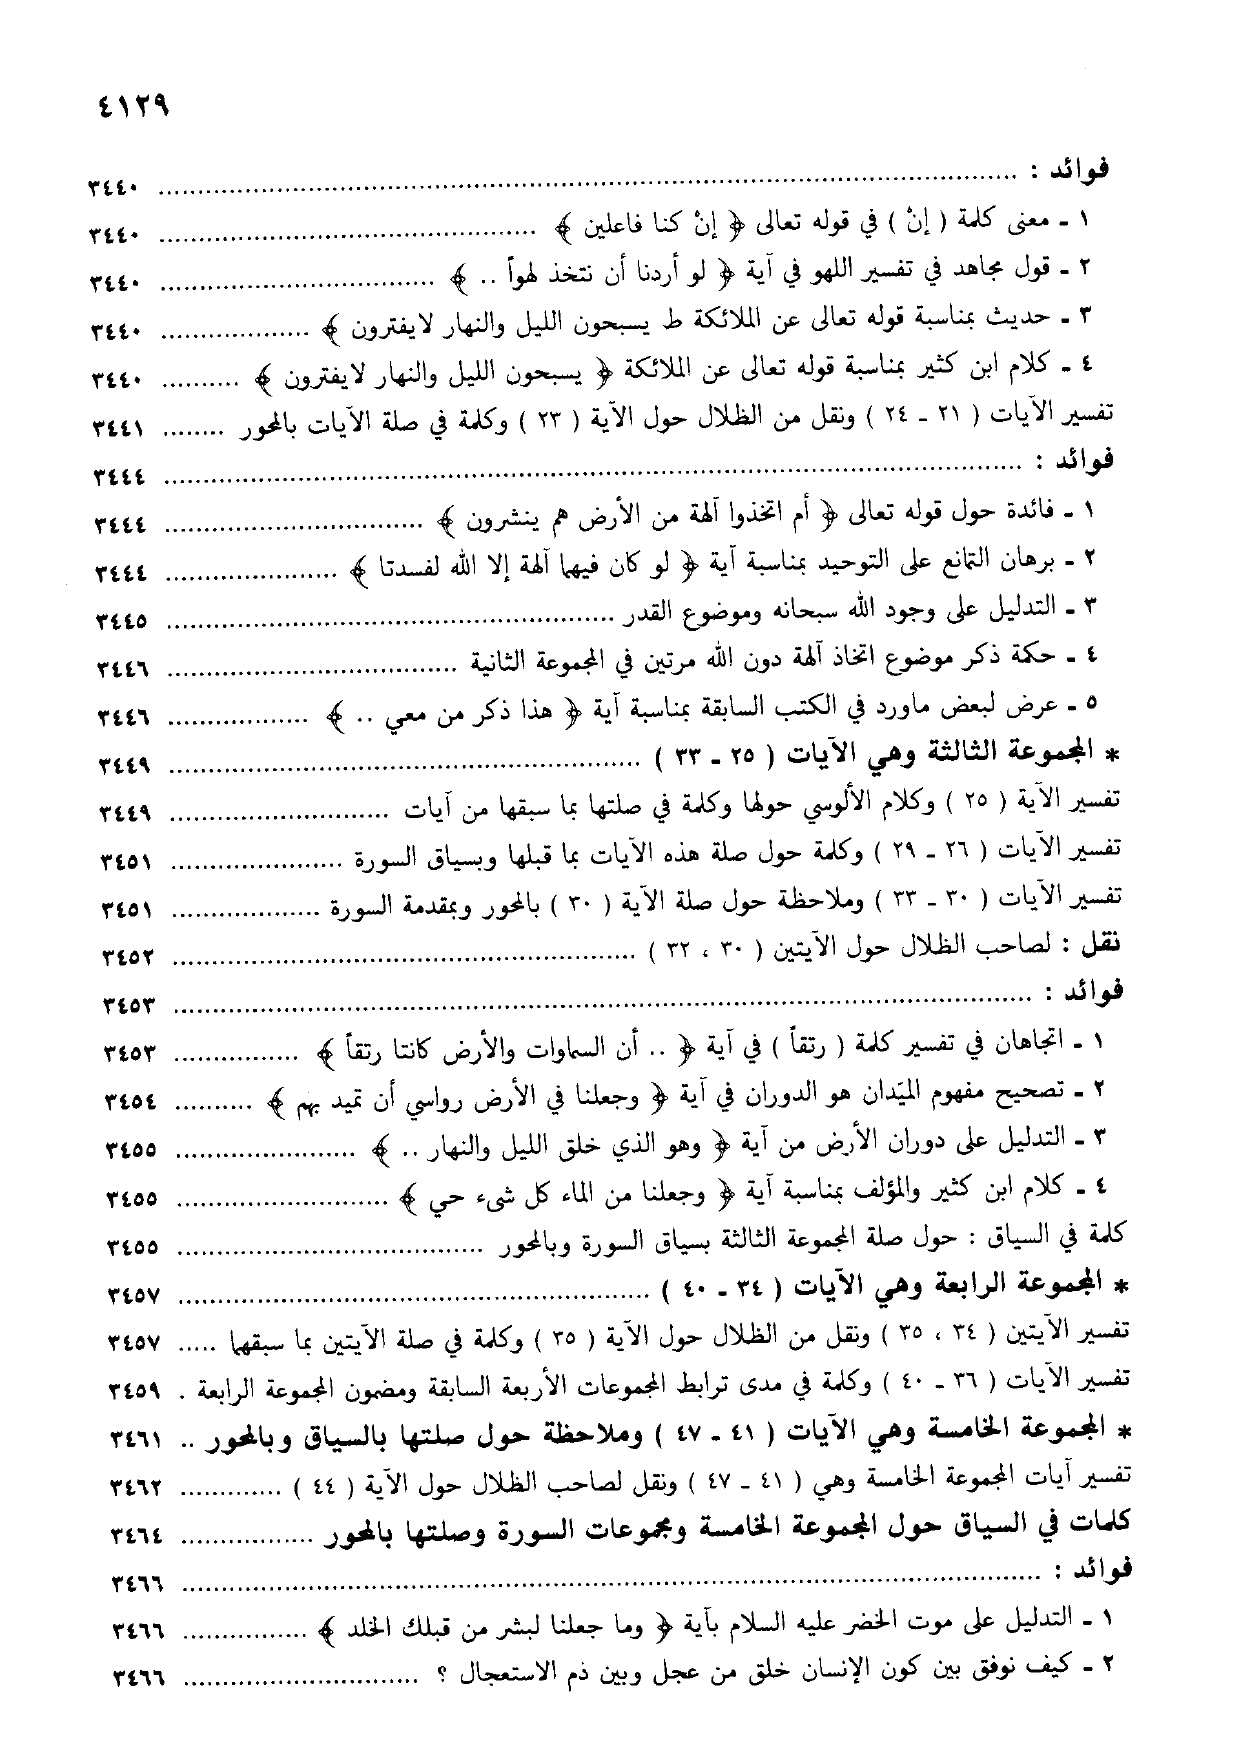 ٤١٢٩
فوائد : ................ ٣٤٤٠
١ ـ معنى كلمة ( إنْ ) في قوله تعالى ﴿ إنْ كنا فاعلين ﴾ ................ ٣٤٤٠
٢ ـ قول مجاهد في تفسير اللهو في آية ﴿ لو أردنا أن نتخذ لهواً .. ﴾ ................ ٣٤٤٠
٣ ـ حديث بمناسبة قوله تعالى عن الملائكة ط يسبحون الليل والنهار لايفترون ﴾ ................ ٣٤٤٠
٤ ـ كلام ابن كثير بمناسبة قوله تعالى عن الملائكة ﴿ يسبحون الليل والنهار لايفترون ﴾ .......... ٣٤٤٠
تفسير الآيات ( ٢١ ـ ٢٤ ) ونقل من الظلال حول الآية ( ٢٣ ) وكلمة في صلة الآيات بالمحور ........ ٣٤٤١
فوائد : ................ ٣٤٤٤
١ ـ فائدة حول قوله تعالى ﴿ أم اتخذوا آلهة من الأرض هم ينشرون ﴾ ................ ٣٤٤٤
٢ ـ برهان التمانع على التوحيد بمناسبة آية ﴿ لو كان فيهما آلهة إلا الله لفسدتا ﴾ ................ ٣٤٤٤
٣ ـ التدليل على وجود الله سبحانه وموضوع القدر ................ ٣٤٤٥
٤ ـ حكمة ذكر موضوع اتخاذ آلهة دون الله مرتين في المجموعة الثانية ................ ٣٤٤٦
٥ ـ عرض لبعض ماورد في الكتب السابقة بمناسبة آية ﴿ هذا ذكر من معي .. ﴾ ................ ٣٤٤٦
* المجموعة الثالثة وهي الآيات ( ٢٥ ـ ٣٣ ) ................ ٣٤٤٩
تفسير الآية ( ٢٥ ) وكلام الألوسي حولها وكلمة في صلتها بما سبقها من آيات ................ ٣٤٤٩
تفسير الآيات ( ٢٦ ـ ٢٩ ) وكلمة حول صلة هذه الآيات بما قبلها وبسياق السورة ................ ٣٤٥١
تفسير الآيات ( ٣٠ ـ ٣٣ ) وملاحظة حول صلة الآية ( ٣٠ ) بالمحور وبمقدمة السورة ................ ٣٤٥١
نقل : لصاحب الظلال حول الآيتين ( ٣٠ ، ٣٢ ) ................ ٣٤٥٢
فوائد : ................ ٣٤٥٣
١ ـ اتجاهان في تفسير كلمة ( رتقاً ) في آية ﴿ .. أن السماوات والأرض كانتا رتقاً ﴾ ................ ٣٤٥٣
٢ ـ تصحيح مفهوم الميَدان هو الدوران في آية ﴿ وجعلنا في الأرض رواسي أن تميد بهم ﴾ .......... ٣٤٥٤
٣ ـ التدليل على دوران الأرض من آية ﴿ وهو الذي خلق الليل والنهار .. ﴾ ................ ٣٤٥٥
٤ ـ كلام ابن كثير والمؤلف بمناسبة آية ﴿ وجعلنا من الماء كل شىء حي ﴾ ................ ٣٤٥٥
كلمة في السياق : حول صلة المجموعة الثالثة بسياق السورة وبالمحور ................ ٣٤٥٥
* المجموعة الرابعة وهي الآيات ( ٣٤ ـ ٤٠ ) ................ ٣٤٥٧
تفسير الآيتين ( ٣٤ ، ٣٥ ) ونقل من الظلال حول الآية ( ٣٥ ) وكلمة في صلة الآيتين بما سبقها ..... ٣٤٥٧
تفسير الآيات ( ٣٦ ـ ٤٠ ) وكلمة في مدى ترابط المجموعات الأربعة السابقة ومضمون المجموعة الرابعة . ٣٤٥٩
* المجموعة الخامسة وهي الآيات ( ٤١ ـ ٤٧ ) وملاحظة حول صلتها بالسياق وبالمحور .. ٣٤٦١
تفسير آيات المجموعة الخامسة وهي ( ٤١ ـ ٤٧ ) ونقل لصاحب الظلال حول الآية ( ٤٤ ) ............. ٣٤٦٢
كلمات في السياق حول المجموعة الخامسة ومجموعات السورة وصلتها بالمحور ................ ٣٤٦٤
فوائد : ................ ٣٤٦٦
١ ـ التدليل على موت الخضر عليه السلام بآية ﴿ وما جعلنا لبشر من قبلك الخلد ﴾ ................ ٣٤٦٦
٢ ـ كيف نوفق بين كون الإنسان خلق من عجل وبين ذم الاستعجال ؟ ................ ٣٤٦٦